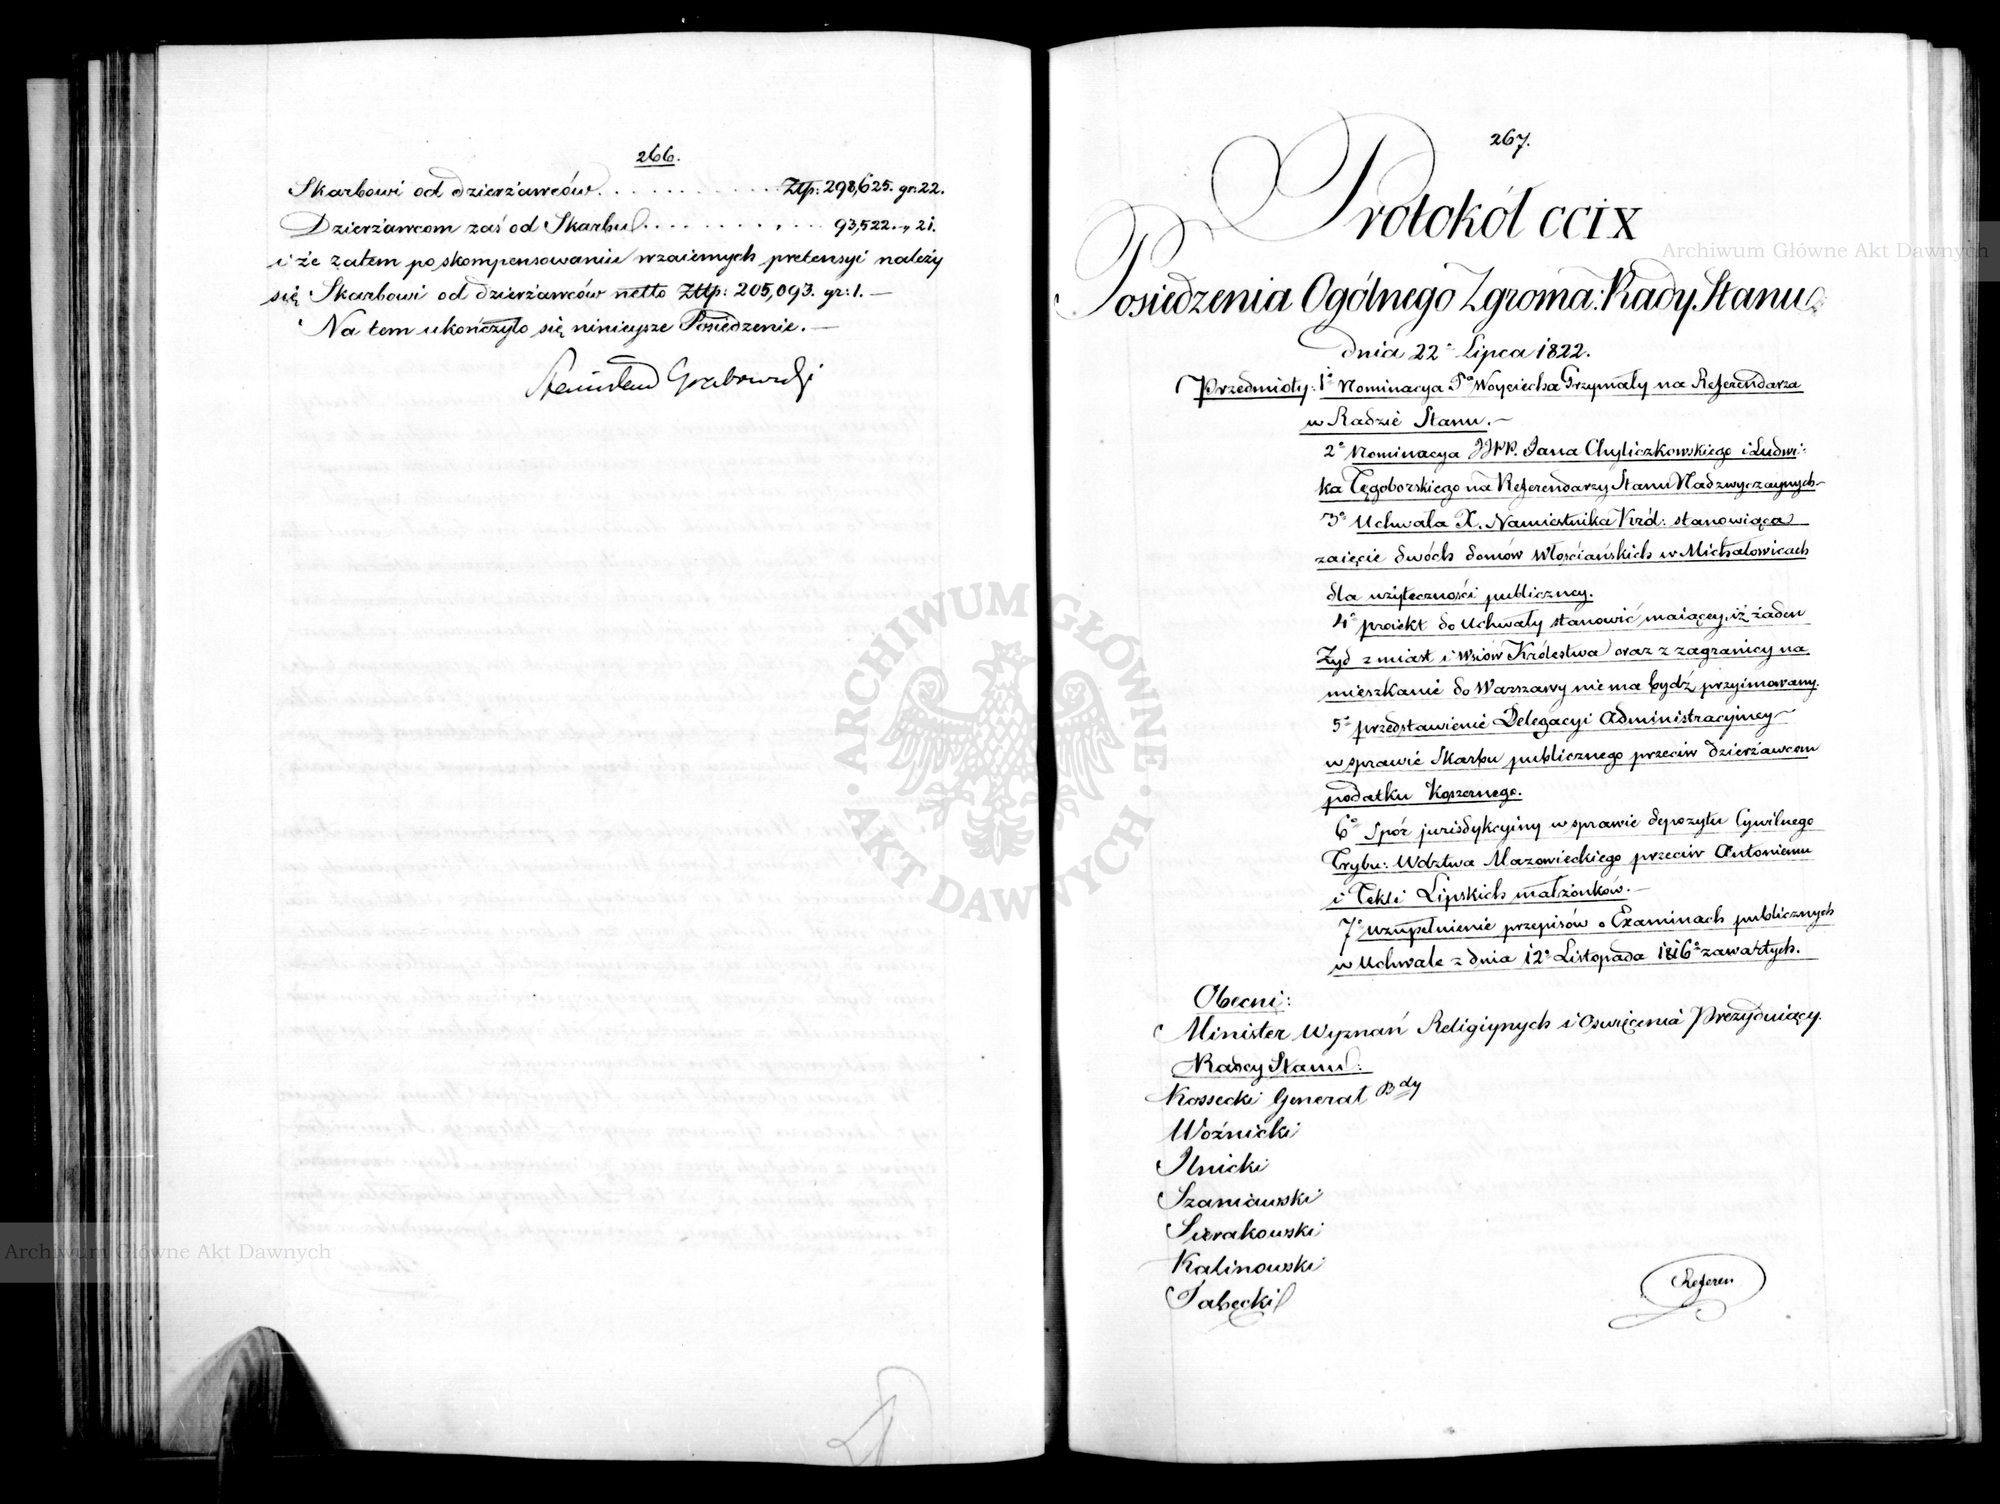 266.
Skarbowi od dzierżawców. . . . . . . . . . . Złtp: 298,625. gr: 22.
Dzierżawcom zaś od Skarbu . . . . . . . . . . 93,522. „ 21.
i że zatem po skompensowaniu wzaiemnych pretensyi należy
się Skarbowi od dzierżawców netto Złtp: 205,093. gr: 1. —
Na tem ukończyło się ninieysze Posiedzenie. —
Stanisław Grabowski
267.
Protokół CCIX
Posiedzenia Ogólnego Zgroma: Rady Stanu
dnia 22º Lipca 1822.
Przedmioty: 1º Nominacya Pª Woyciecha Grzymały na Referendarza
w Radzie Stanu. —
2º Nominacya JJPP. Jana Chyliczkowskiego i Ludwi:
ka Tęgoborskiego na Referendarzy Stanu Nadzwyczaynych —
3º Uchwała X. Namiestnika Król: stanowiąca
zaięcie dwóch domów Włościańskich w Michałowicach
dla użyteczności publiczney.
4º proiekt do Uchwały stanowić maiącey, iż żaden
Żyd z miast i wsiów Królestwa oraz z zagranicy na
mieszkanie do Warszawy nie ma bydź przyimowany.
5º przedstawienie Delegacyi Administracyiney —
w sprawie Skarbu publicznego przeciw dzierżawcom
podatku Koszernego.
6º Spór jurisdykcyiny w sprawie depozytu Cywilnego
Trybu: Wdztwa Mazowieckiego przeciw Antoniemu
i Tekli Lipskich małżonków. —
7º uzupełnienie przepisów o Examinach publicznych
w Uchwale z dnia 12º Listopada 1816º zawartych.
Obecni:
Minister Wyznań Religiynych i Oswięcenia Prezyduiący.
Radcy Stanu:
Kossecki Generał Bdy
Woźnicki
Ilnicki
Szaniawski
Sierakowski
Kalinowski
Tabęcki
Referen
Archiwum Główne Akt Dawnych
Archiwum Główne Akt Dawnych
ARCHIWUM GŁÓWNE · AKT DAWNYCH ·